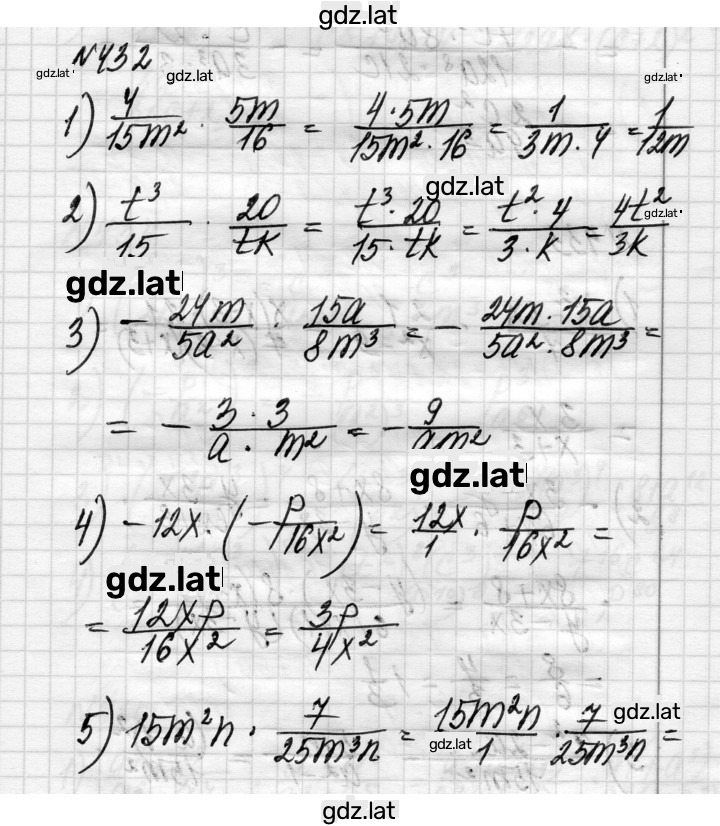 gdz.lat
№432
gdz.lat gdz.lat gdz.lat
1) 4/15m² · 5m/16 = 4·5m/15m²·16 = 1/3m·4 = 1/12m
gdz.lat
2) t³/15 · 20/tk = t³·20/15·tk = t²·4/3·k = 4t²/3k
gdz.lat
gdz.lat
3) - 24m/5a² · 15a/8m³ = - 24m·15a/5a²·8m³ =
= - 3·3/a·m² = - 9/am²
gdz.lat
4) -12x·(-p/16x²) = 12x/1 · p/16x² =
gdz.lat
= 12x·p/16x² = 3p/4x²
5) 15m²n · 7/25m³n = 15m²n/1 · 7/25m³n =
gdz.lat
gdz.lat
gdz.lat